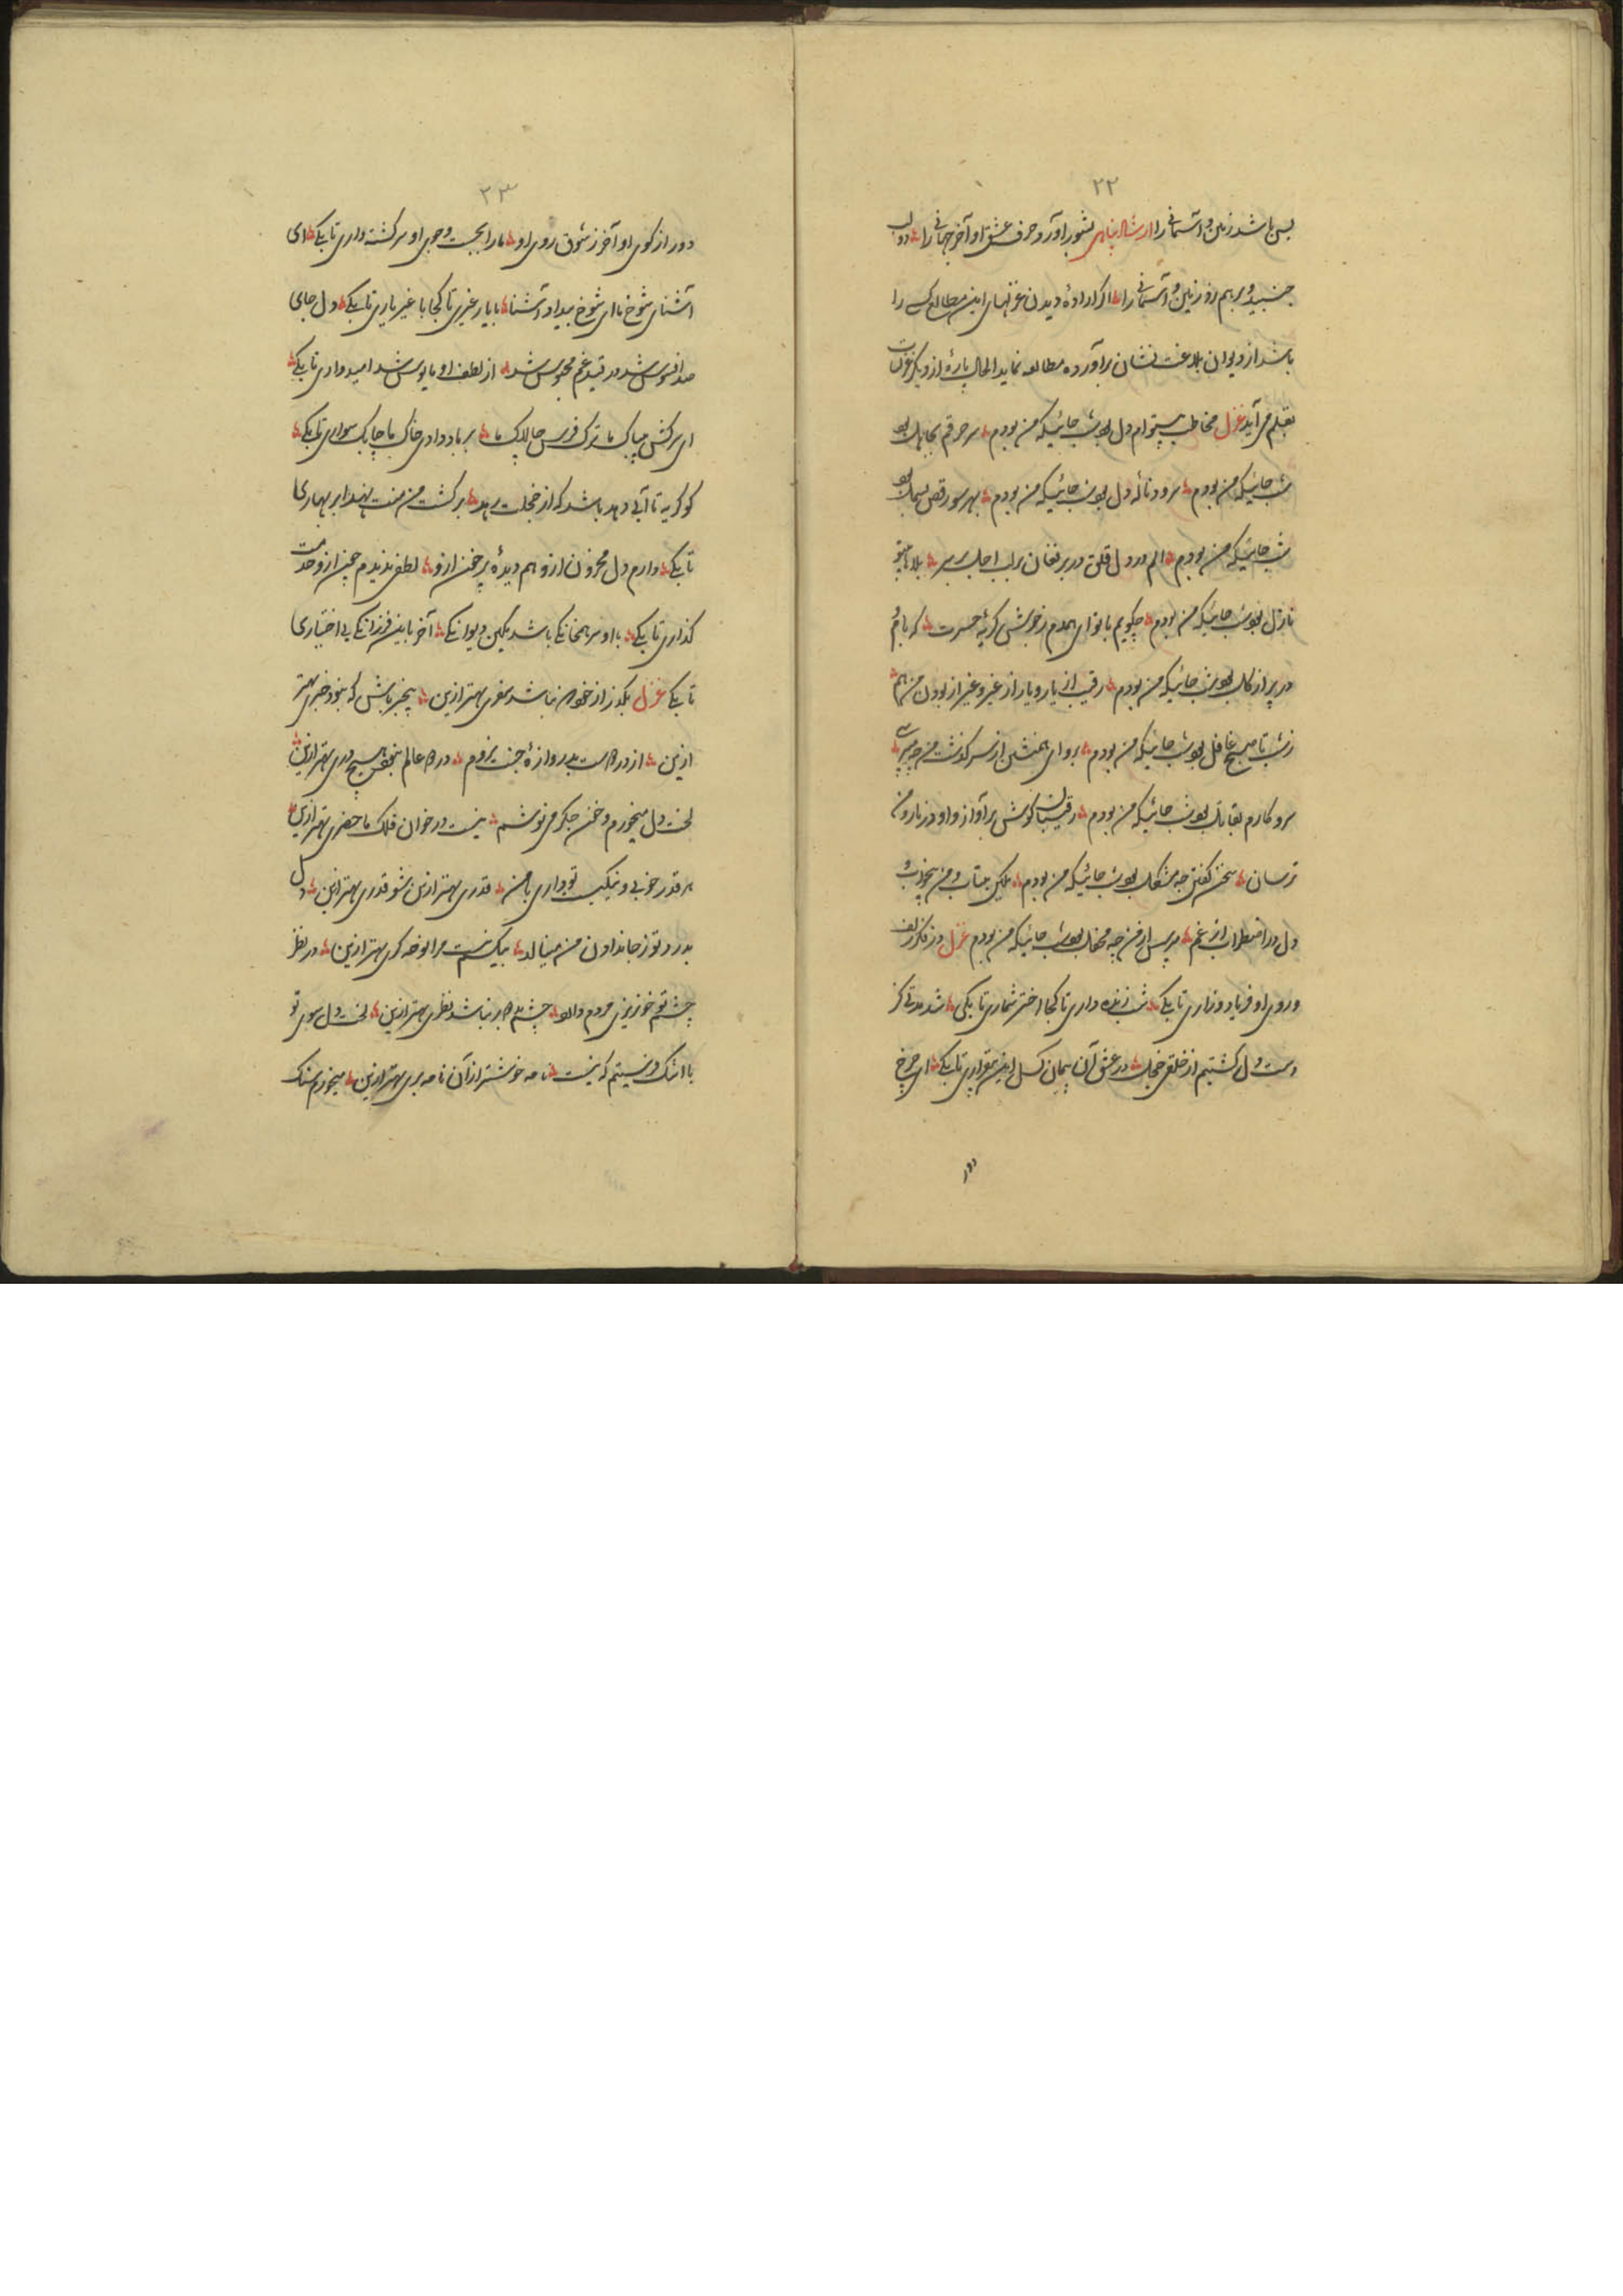 ۲۲
بس باشد زمین و آسمانی را ارشاد پناهی بشور آورد حرف عشق او آخر جهانی را دو لب
جنبید و برهم زد زمین و آسمانی را اگر اراده دیدن غزلهای این مطالع کسی را
باشد از دیوان بلاغت نشان برآورده مطالعه نماید الحال پاره از دیگر غزلیات
بقلم می آید غزل مخاطب دل بود شب جائیکه من بودم بود
شب جائیکه من بودم سرود ناله دل بود شب جائیکه من بودم بهر سو رقص بسمل بود
شب جائیکه من بودم الم در دل قلق در بر فغان بر لب اجل بر سر بلاها
نازل بود شب جائیکه من بودم چگویم با تو ای همدم ز خوشش گریه حسرت که بام و
در پر از گل بود شب جائیکه من بودم رقیب از یار و یار از غیر و غیر از بودن من هم
ز شب تا صبح غافل بود شب جائیکه من بودم برو ای همنشین از سرگذشت من چه میپرسی
سر و کارم بقاتل بود شب جائیکه من بودم رقیبان گوش بر آواز و او در ناز و من
ترسان سخن گفتن چه مشکل بود شب جائیکه من بودم یکی بیتاب و من بیخواب و
دل در اضطراب از غم مپرس از من چه محفل بود شب جائیکه من بودم غزل در فکر زلف
و روی او فریاد و زاری تا بکی شب زنده داری تا کجا اختر شماری تا بکی شد مدتی کز
دست دل گشتیم از خلقی خجل در عشق آن پیمان گسل این بیقراری تا بکی ای چرخ
دور
۲۳
دور از کوی او آخر ز شوق روی او ما را بجست و جوی او سرگشته داری تا بکی ای
آشنای شوخ ما ای شوخ بیداد آشنا با یار غیری تا کجا با غیر یاری تا بکی دل جای
صد افسوس شد در قید غم محبوس شد از لطف او مایوس شد امیدواری تا بکی
ای سرکش بیباک ما ترک فرس چالاک ما بر باد دادی خاک ما چابک سواری تا بکی
کو گریه تا آبی دهد باشد که از خجلت رهد بر کشت من منت نهد ابر بهاری
تا بکی دارم دل محزون ازو هم دیده پر خون ازو لطفی ندیدم چون ازو خدمت
گذاری تا بکی با او سر همخانگی باشد یکی دیوانگی آخر باین فرزانگی بی اختیاری
تا بکی غزل بگذر از خویش نباشد سفری بهتر ازین بیخبر باش که نبود خبری بهتر
ازین از در دوست بدروازه جنت نروم در دو عالم نبود هیچ دری بهتر ازین
لخت دل میخورم و خون جگر می نوشم نیست در خوان فلک ماحضری بهتر ازین
هر قدر خوبی و نیکیست تو داری با من قدری بهتر ازین شو قدری بهتر ازین دل
بدرد تو ز جا من مینالد بیکسم نیست مرا نوحه گری بهتر ازین در نظر
چشم تو خونریزی مردم دارد چشم بد دور نباشد نظری بهتر ازین لخت دل سوی تو
با اشک فرستیم که نیست نامه خوشتر از آن نامه بری بهتر ازین میخورم سنگ